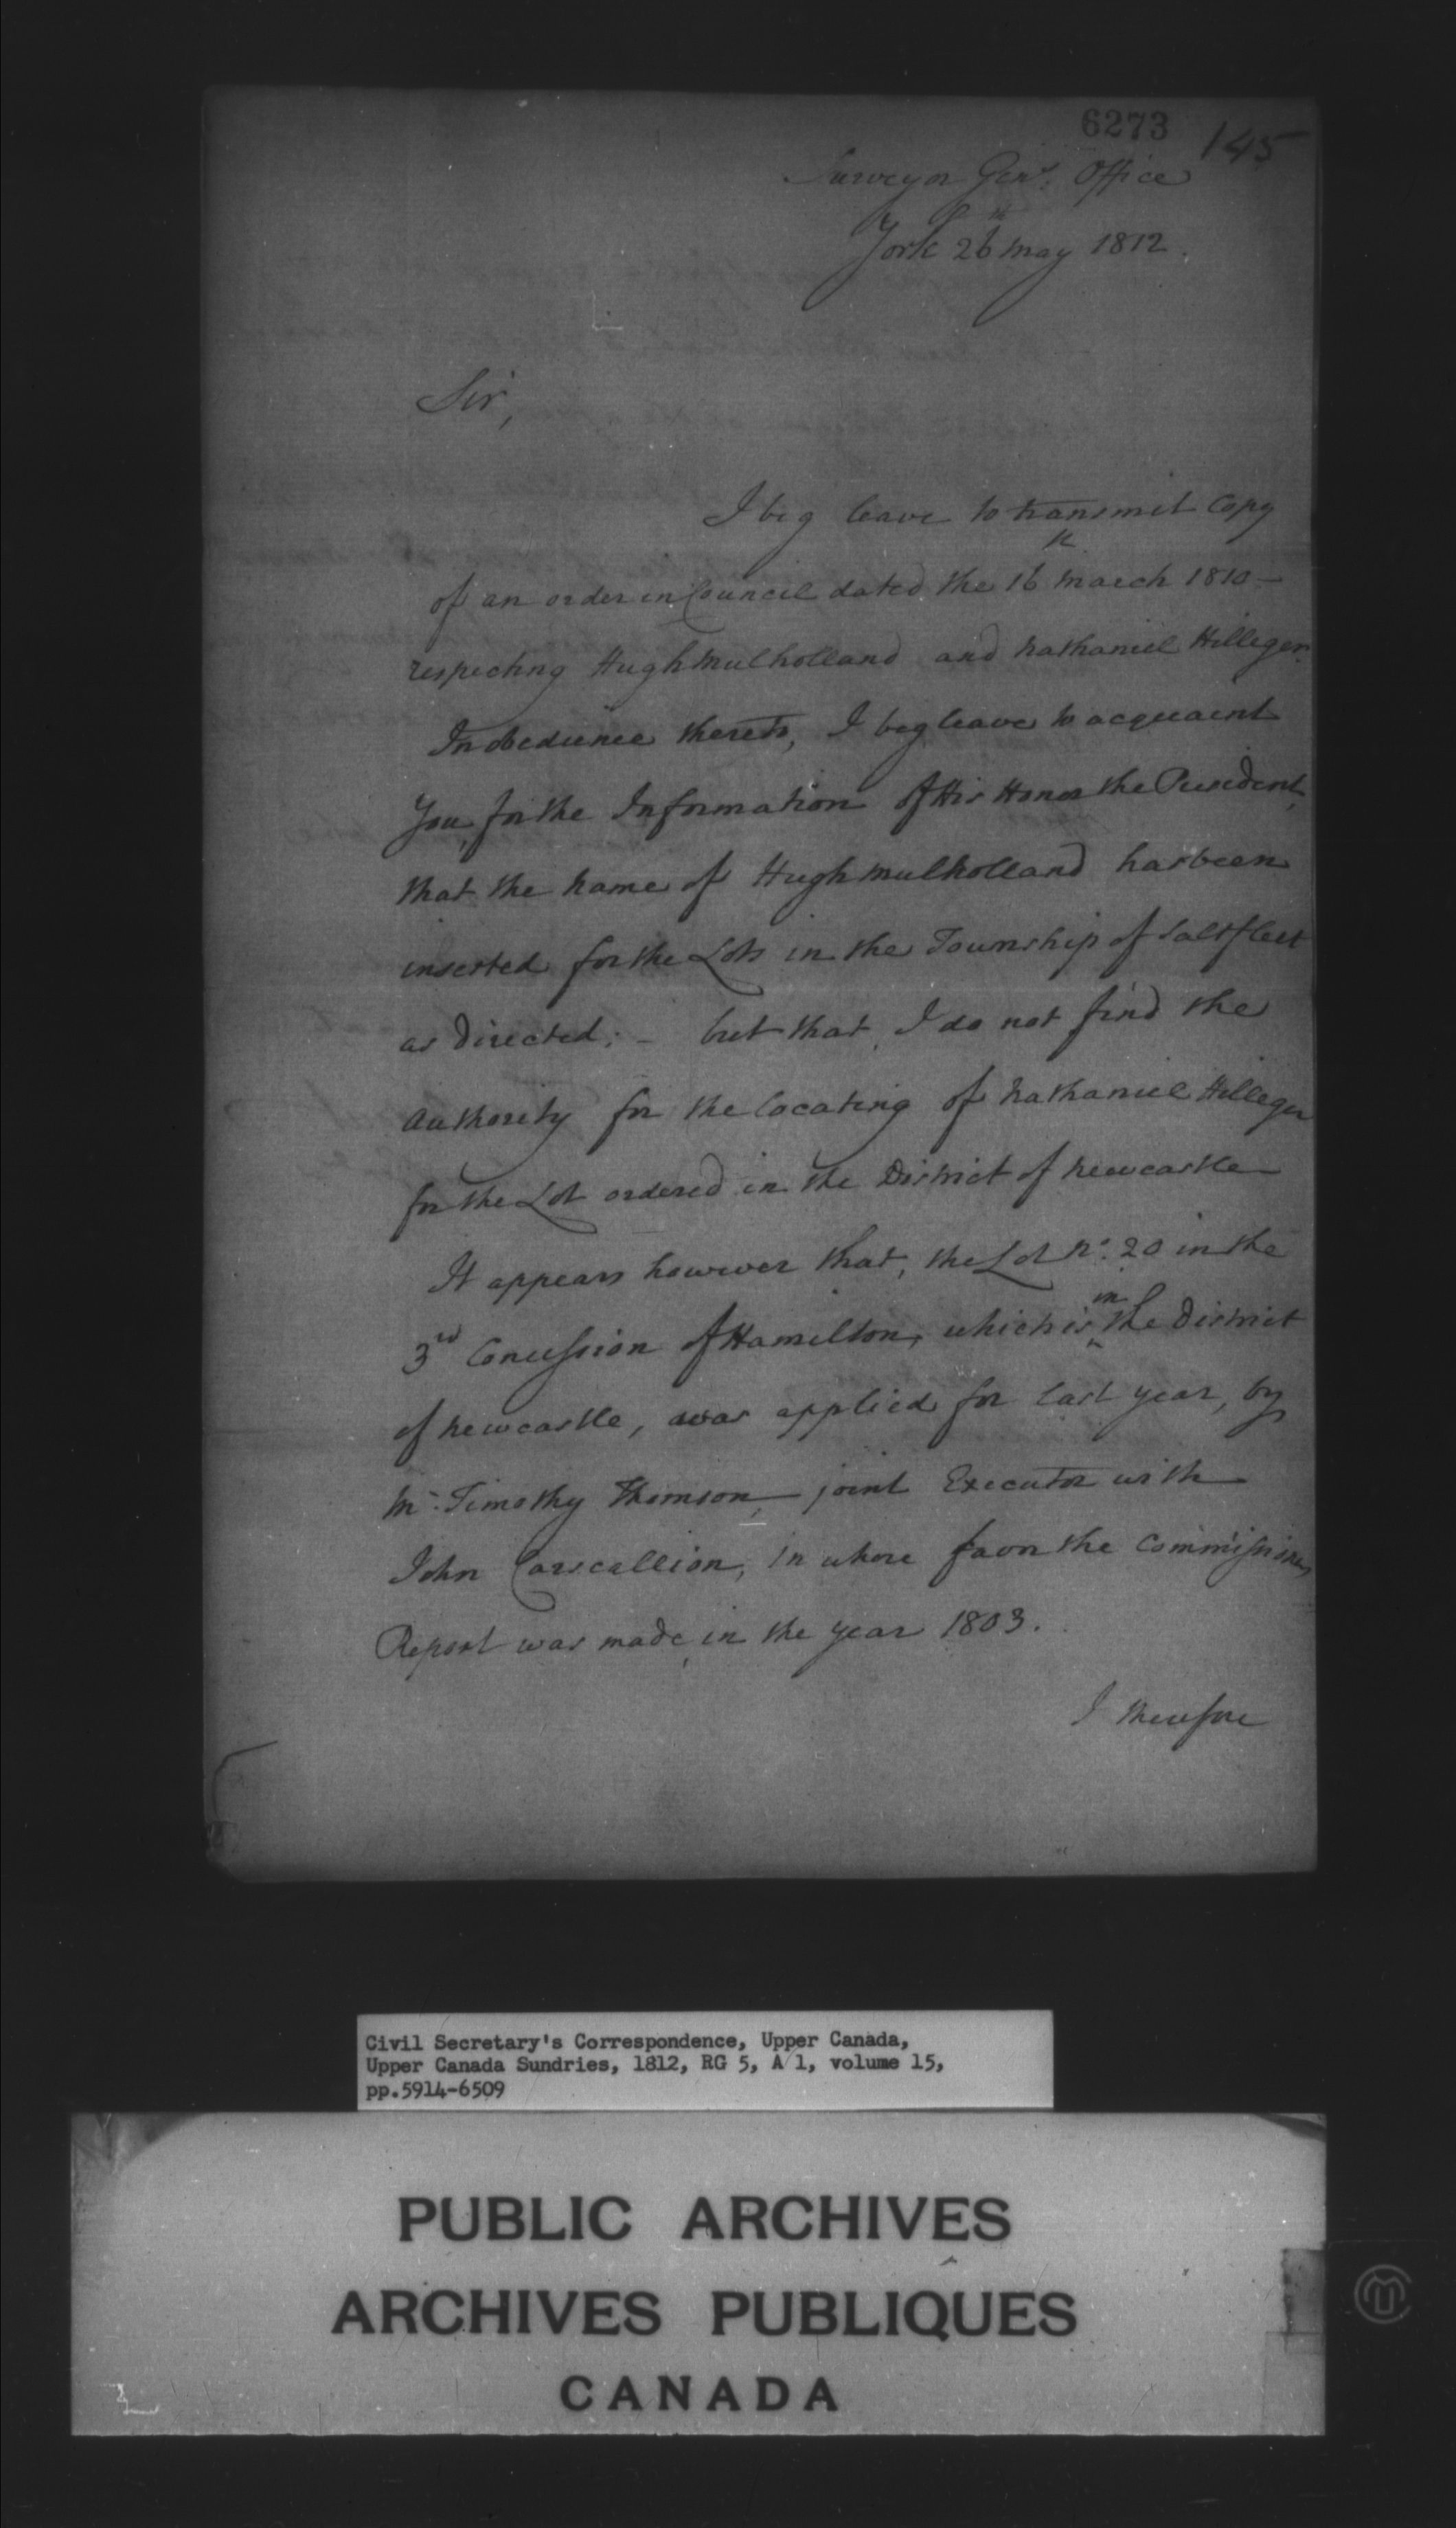 6273
145
Surveyor Genl. Office
York 26th may 1812.
Sir,
I beg leave to transmit Copy
of an order in Council dated the 16th march 1810 —
respecting Hugh mulholland and nathaniel Hilleger.
In obedience thereto, I beg leave to acquaint
You, for the Information of His Honor the President,
that the name of Hugh mulholland has been
inserted for the Lots in the Township of Saltfleet
as directed; - but that, I do not find the
authority for the locating of nathaniel Hilleger
for the Lot ordered in the District of newcastle
It appears however that, the Lot no. 20 in the
3rd Concession of Hamilton, which is in the District
of newcastle, was applied for last year, by
mr. Timothy Thomson, joint Executor with
John Carscallion, in whose favor the Commissioners
Report was made, in the year 1803.
I therefore
Civil Secretary's Correspondence, Upper Canada,
Upper Canada Sundries, 1812, RG 5, A 1, volume 15,
pp.5914-6509
PUBLIC ARCHIVES
ARCHIVES PUBLIQUES
CANADA